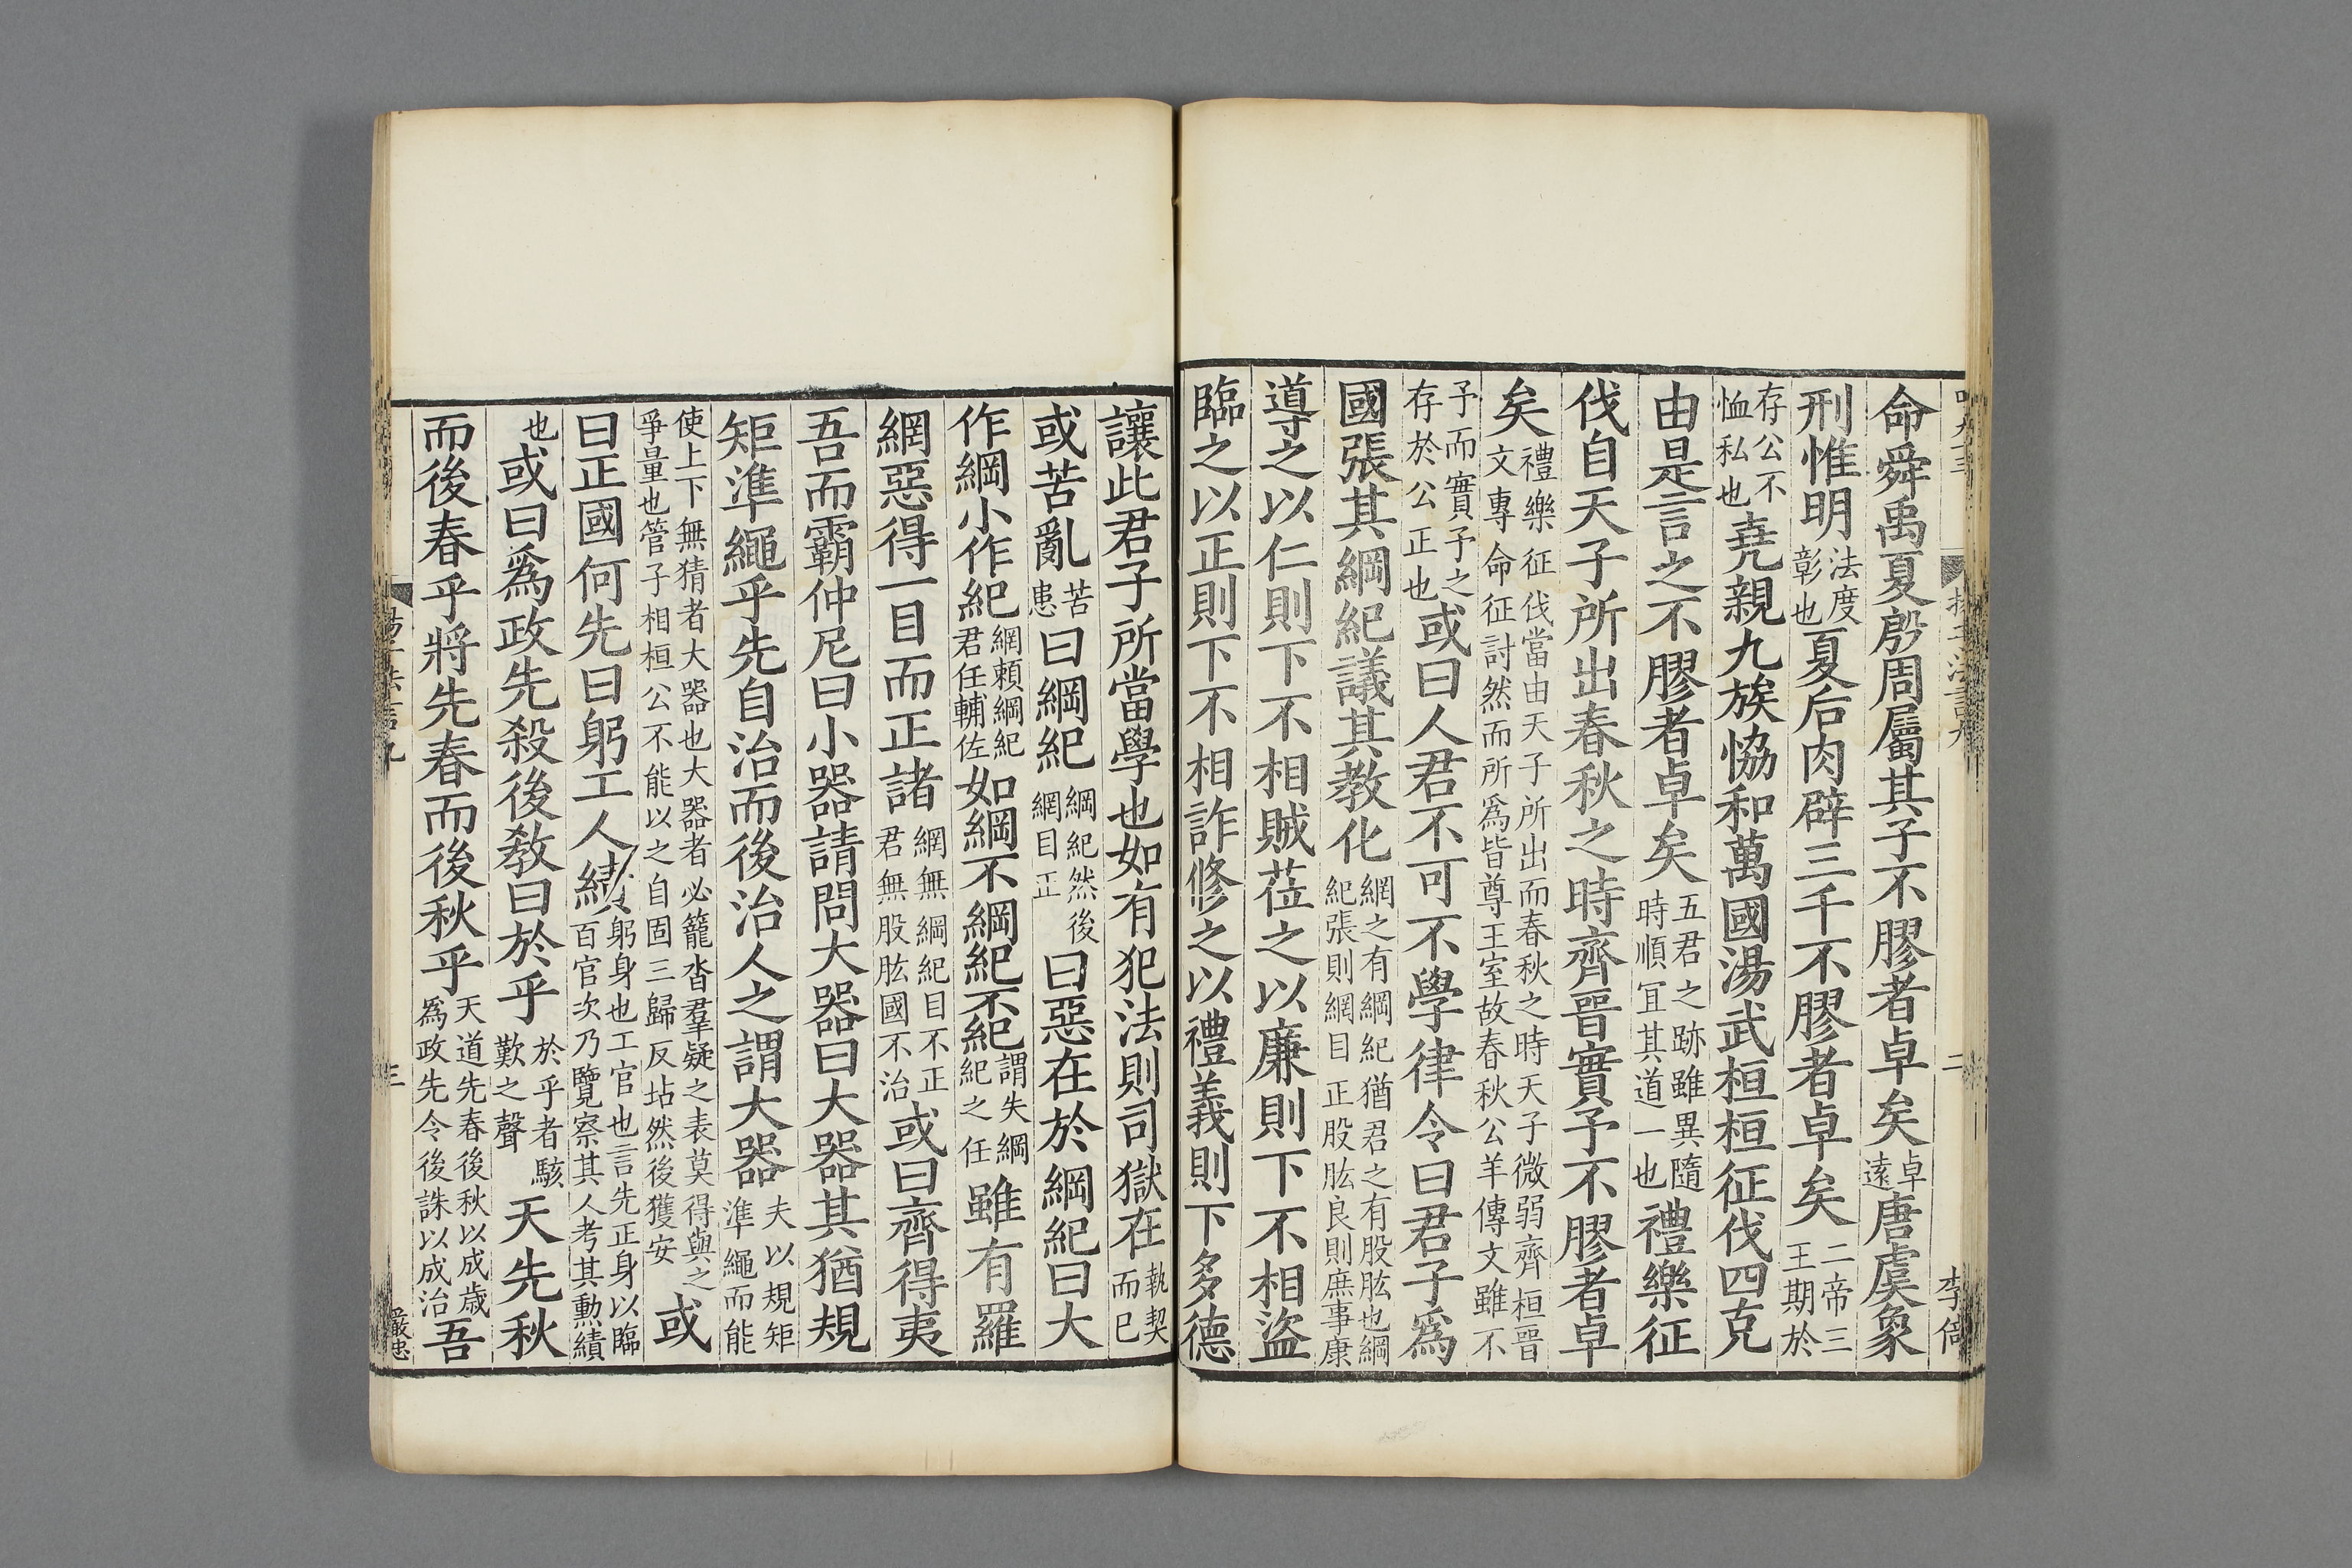 命舜禹夏殷周屬其子不膠者卓矣卓遠唐虞象
刑惟明法度彰也夏后肉辟三千不膠者卓矣二帝三王期於
存公不恤私也堯親九族協和萬國湯武桓桓征伐四克
由是言之不膠者卓矣五君之跡雖異隨時順冝其道一也禮樂征
伐自天子所出春秋之時齊晉實予不膠者卓
矣禮樂征伐當由天子所出而春秋之時天子微弱齊桓晉文專命征討然而所爲皆尊王室故春秋公羊傳文雖不
予而實予之存於公正也或曰人君不可不學律令曰君子爲
國張其綱紀議其教化網之有綱紀猶君之有股肱也綱紀張則網目正股肱良則庶事康
導之以仁則下不相賊莅之以廉則下不相盜
臨之以正則下不相詐修之以禮義則下多德
讓此君子所當學也如有犯法則司獄在執契而已
或苦亂苦患曰綱紀綱紀然後網目正曰惡在於綱紀曰大
作綱小作紀網頼綱紀君任輔佐如綱不綱紀不紀謂失綱紀之任雖有羅
網惡得一目而正諸網無綱紀目不正君無股肱國不治或曰齊得夷
吾而霸仲尼曰小器請問大器曰大器其猶規
矩準繩乎先自治而後治人之謂大器夫以規矩準繩而能
使上下無猜者大器也大器者必籠沓羣疑之表莫得與之爭量也管子相桓公不能以之自固三歸反坫然後獲安或
曰正國何先曰躬工人績躬身也工官也言先正身以臨百官次乃覽察其人考其勲績
也或曰爲政先殺後教曰於乎於乎者駭歎之聲天先秋
而後春乎將先春而後秋乎天道先春後秋以成歳爲政先令後誅以成治吾
三
嚴忠
二
李倚